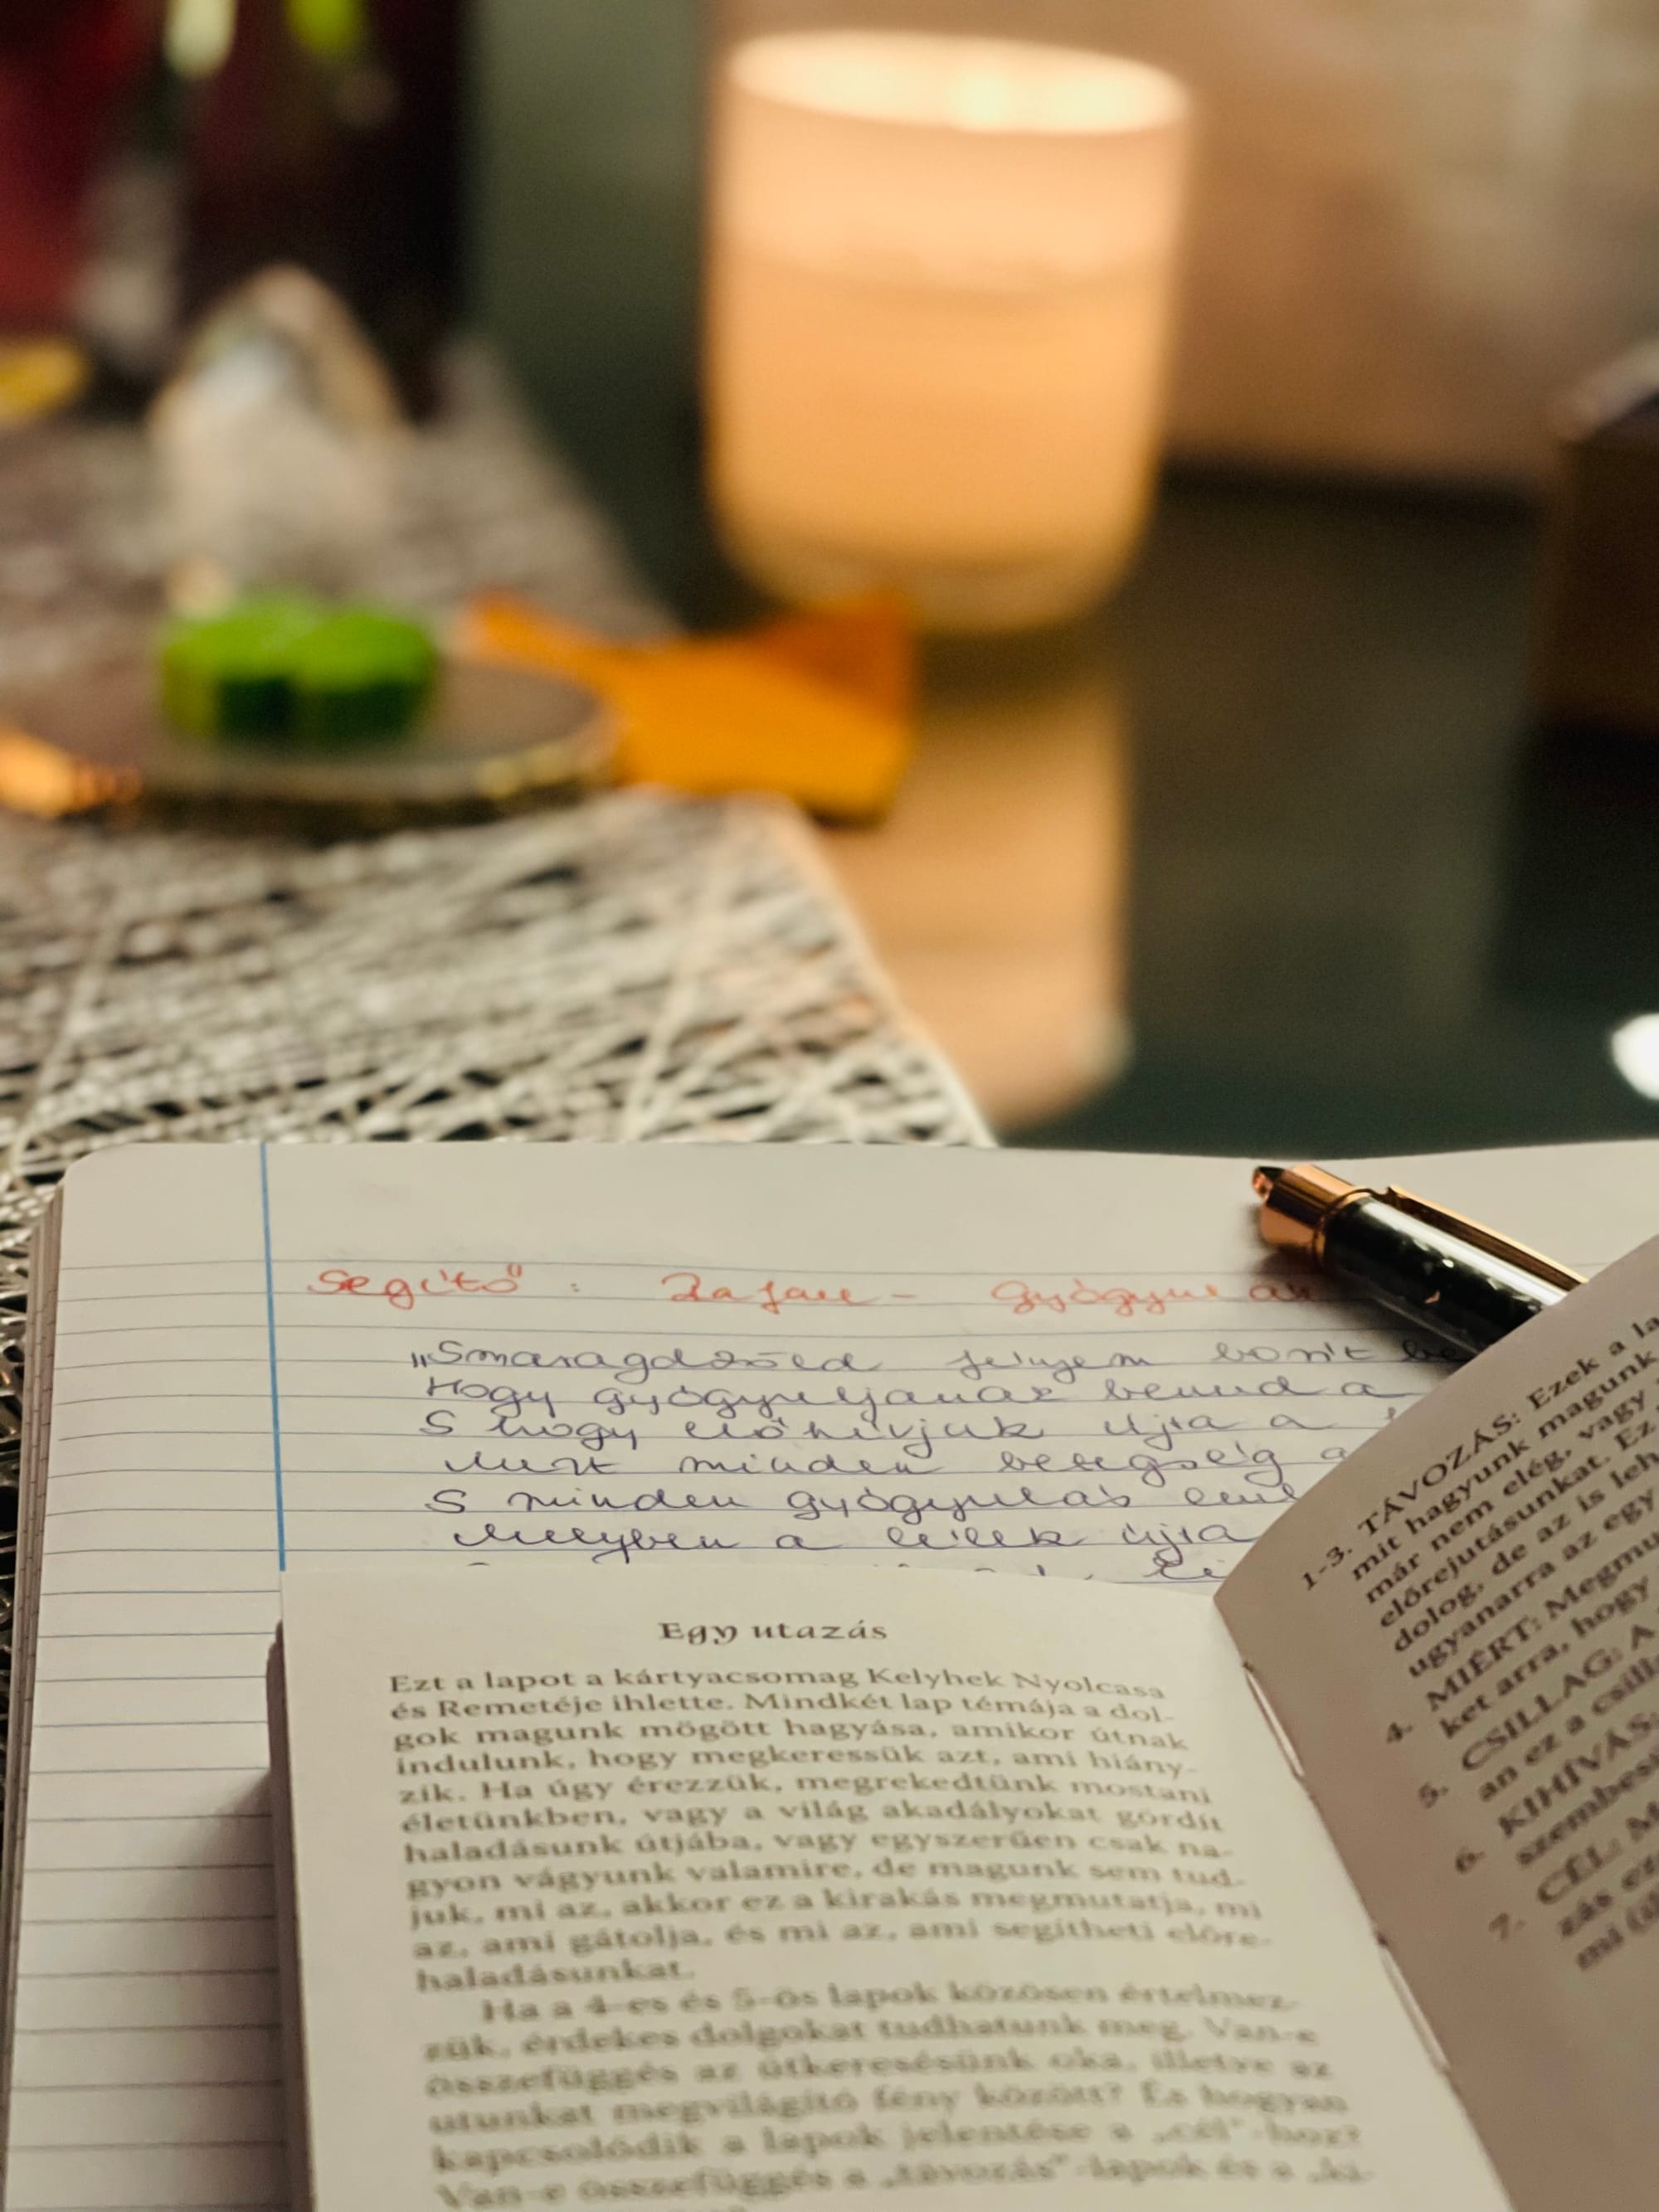 Segítő : Zafael - Gyógyulás
„Smaragdzöld fényem borít be
Hogy gyógyuljanak benned a
S hogy előhívjuk újra a
Mert minden betegség a
S minden gyógyulás
Melyben a lélek újra
Egy utazás
Ezt a lapot a kártyacsomag Kelyhek Nyolcasa
és Remetéje ihlette. Mindkét lap témája a dol-
gok magunk mögött hagyása, amikor útnak
indulunk, hogy megkeressük azt, ami hiány-
zik. Ha úgy érezzük, megrekedtünk mostani
életünkben, vagy a világ akadályokat gördít
haladásunk útjába, vagy egyszerűen csak na-
gyon vágyunk valamire, de magunk sem tud-
juk, mi az, akkor ez a kirakás megmutatja, mi
az, ami gátolja, és mi az, ami segítheti előre-
haladásunkat.
Ha a 4-es és 5-ös lapok közösen értelmez-
zük, érdekes dolgokat tudhatunk meg. Van-e
összefüggés az útkeresésünk oka, illetve az
utunkat megvilágító fény között? És hogyan
kapcsolódik a lapok jelentése a „cél"-hoz?
Van-e összefüggés a „távozás"-lapok és a „ki-
1-3. TÁVOZÁS: Ezek a la
mit hagyunk magunk
már nem elég, vagy
előrejutásunkat. Ez
dolog, de az is leh
ugyanarra az egy
4. MIÉRT: Megmu
ket arra, hogy
5. CSILLAG: A
an ez a csill
6. KIHÍVÁS:
szembes
7. CÉL: M
zás ez
mi (i